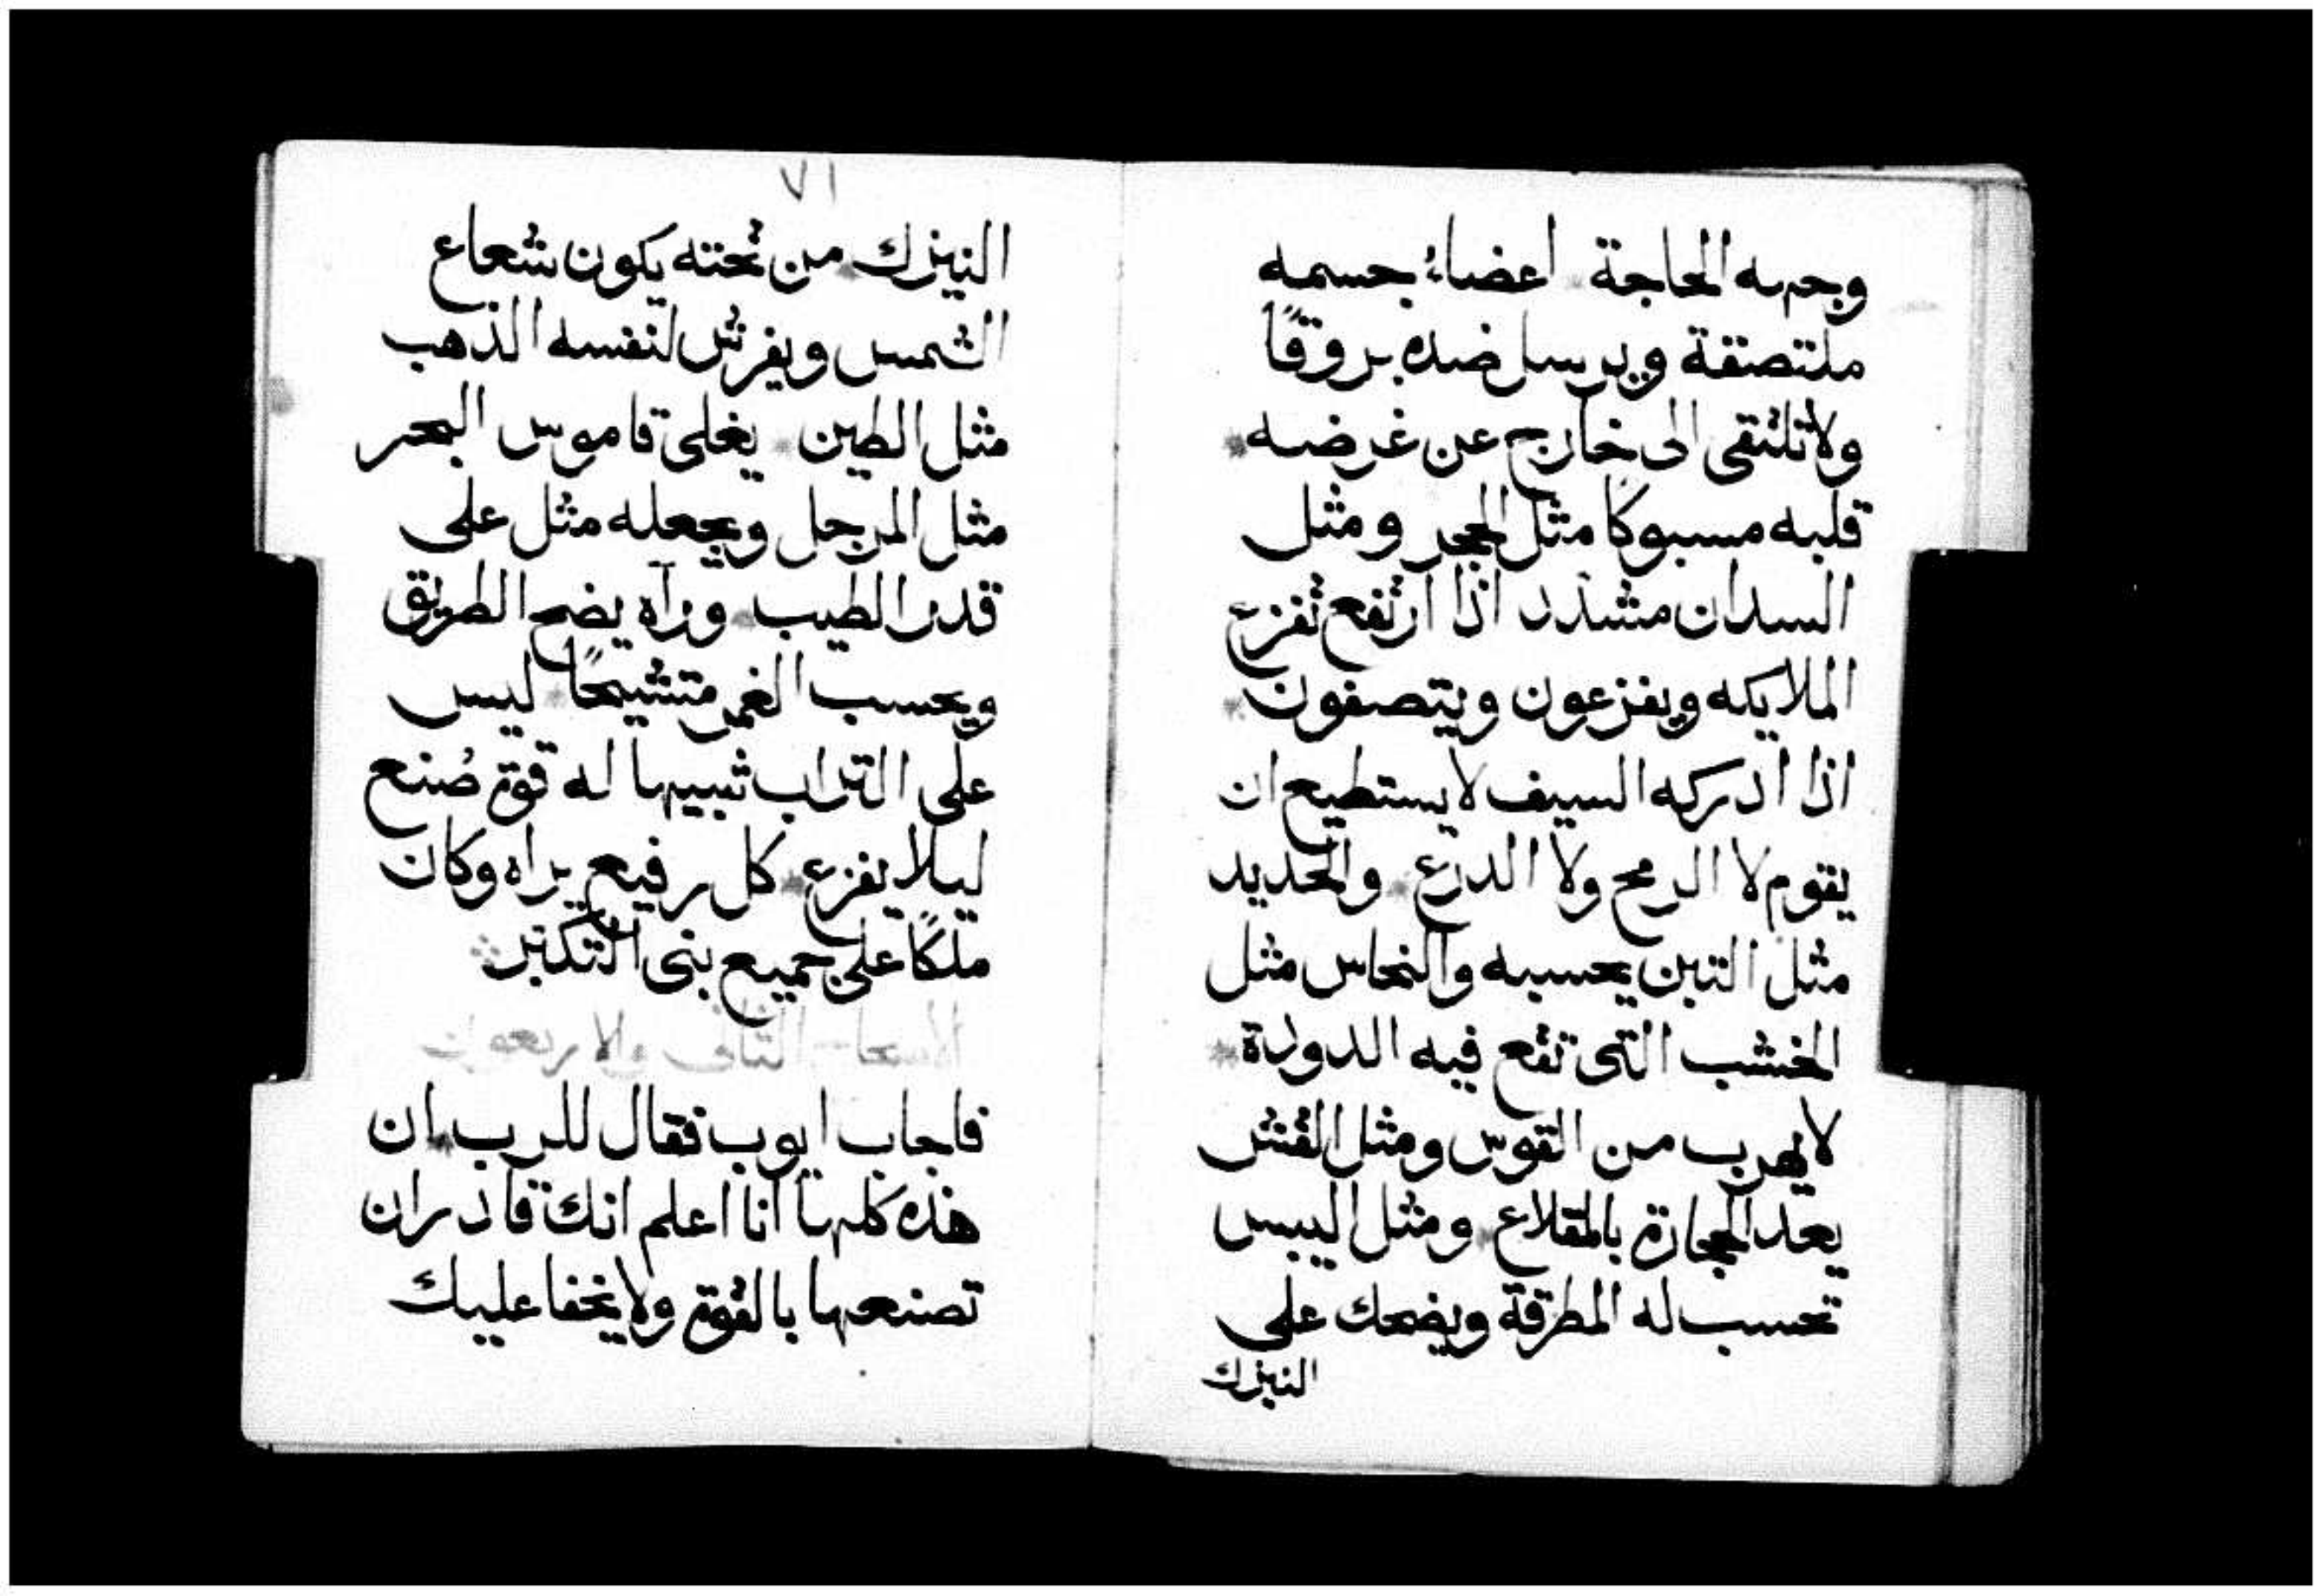 وجهه الحاجة اعضاء جسمه
ملتصقة ويرسل ضده بروقًا
ولا تلتقى الى خارج عن غرضه
قلبه مسبوكا مثل الحجر ومثل
السدان مشدد اذا ارتفع تفزع
الملايكه ويفزعون ويتصفون
اذا ادركه السيف لا يستطيع ان
يقوم لا الرمح ولا الدرع والحديد
مثل التبن يحسبه والنحاس مثل
الخشب التى تقع فيه الدودة
لا يهرب من القوس ومثل القش
يعد الحجارة بالمقلاع ومثل اليبس
تحسب له المطرقة ويضحك على
النيزك
٧١
النيزك من تحته يكون شعاع
الشمس ويفرش لنفسه الذهب
مثل الطين يغلى قاموس البحر
مثل المرجل ويجعله مثل على
قدر الطيب وراه يضح الطريق
ويحسب الغمر متشيحًا ليس
على التراب شبيها له قوة صُنع
ليلا يفزع كل رفيع يراه وكان
ملكًا على جميع بنى التكبر
الاصحاح الثانى والاربعون
فاجاب ايوب فقال للرب ان
هذه كلها انا اعلم انك قادر ان
تصنعها بالقوة ولا يخفا عليك